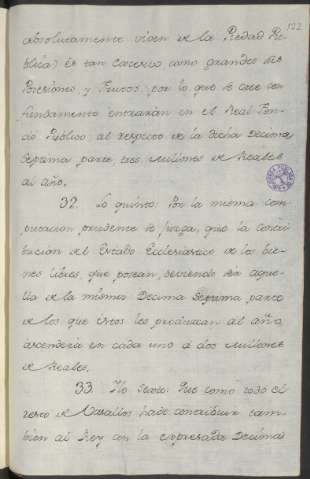 122
absolutamente viven de la Piedad Pu-
blica) es tan excesivo como grandes sus
Posesiones y Frutos, por lo que se cree con
fundamento entrarán en el Real Fon-
do Público al respecto de la dicha Decima
Septima parte, tres millones de Reales
al año.
32. Lo quinto: Por la misma com-
putacion prudente se juzga, que la contri-
bucion del Estado Eclesiastico de los bie-
nes libres, que posean, deviendo ser aque-
lla de la misma Decima Septima parte
de los que estos les produzcan al año,
ascenderia en cada uno a dos millones
de Reales.
33. Lo Sexto: Que como todo el
resto de Vasallos hade contribuir tam-
bien al Rey con la expresada Decima